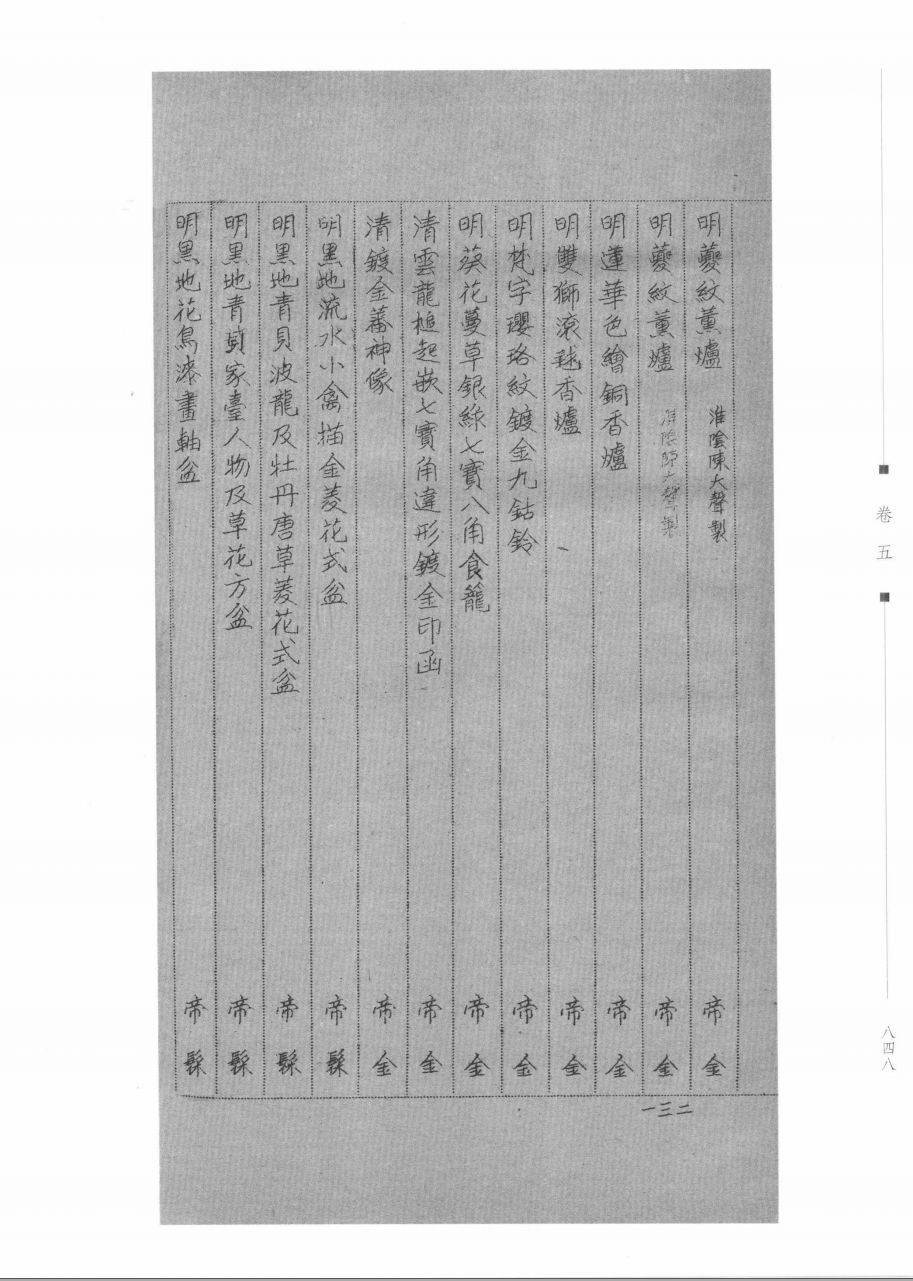 明夔紋薰爐 淮陰陳大聲製 帝 金
明夔紋薰爐 淮陰 大聲製 帝 金
明蓮華色繪銅香爐 帝 金
明雙獅滾毬香爐 帝 金
明梵字瓔珞紋鍍金九鈷鈴 帝 金
明葵花蔓草銀線七寶八角食籠 帝 金
清雲龍槌起嵌七寶角違形鍍金印函 帝 金
清鍍金蕃神像 帝 金
明黑地流水小禽描金菱花式盆 帝 髹
明黑地青貝波龍及牡丹唐草菱花式盆 帝 髹
明黑地青貝家臺人物及草花方盆 帝 髹
明黑地花鳥漆畫軸盆 帝 髹
一三二
卷五
八四八